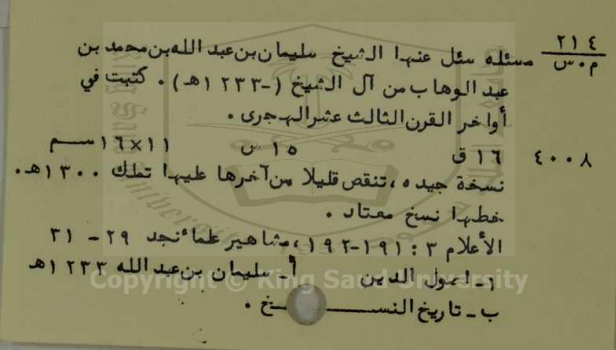 ٢١٤
م.س
مسئله سئل عنها الشيخ سليمان بن عبد الله بن محمد بن
عبد الوهاب من آل الشيخ (-١٢٣٣هـ). كتبت في
أواخر القرن الثالث عشر الهجرى.
٤٠٠٨ ١٦ ق ١٥ س ١١×١٦ سم
نسخة جيده، تنقص قليلا من آخرها عليها تملك ١٣٠٠هـ.
خطها نسخ معتاد.
الأعلام ٣ : ١٩١-١٩٢، مشاهير علماء نجد ٢٩ - ٣١
١- اصول الدين أ- سليمان بن عبد الله ١٢٣٣هـ
ب- تاريخ النسخ.
Copyright © King Saud University